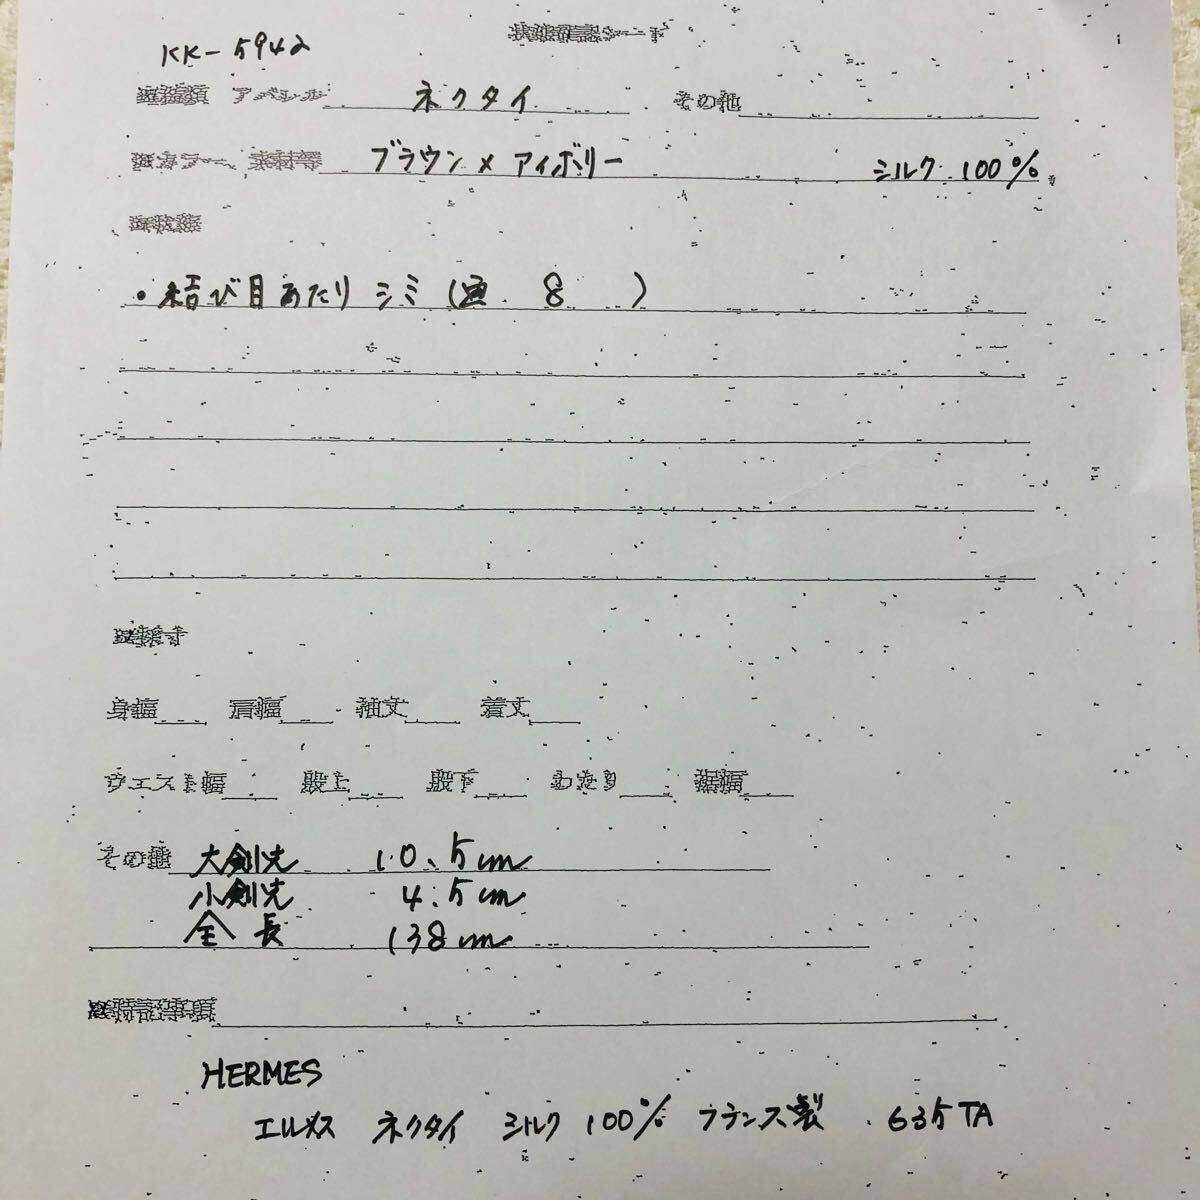 KK-5942
アパレル ネクタイ その他
カラー 素材等 ブラウン×アイボリー シルク 100%
・結び目あたり シミ (画 8 )
採寸
身幅 肩幅 袖丈 着丈
ウエスト幅 股上 股下 わたり 裾幅
その他 大剣先 10.5cm
小剣先 4.5cm
全長 138cm
特記事項
HERMES
エルメス ネクタイ シルク 100% フランス製 635TA